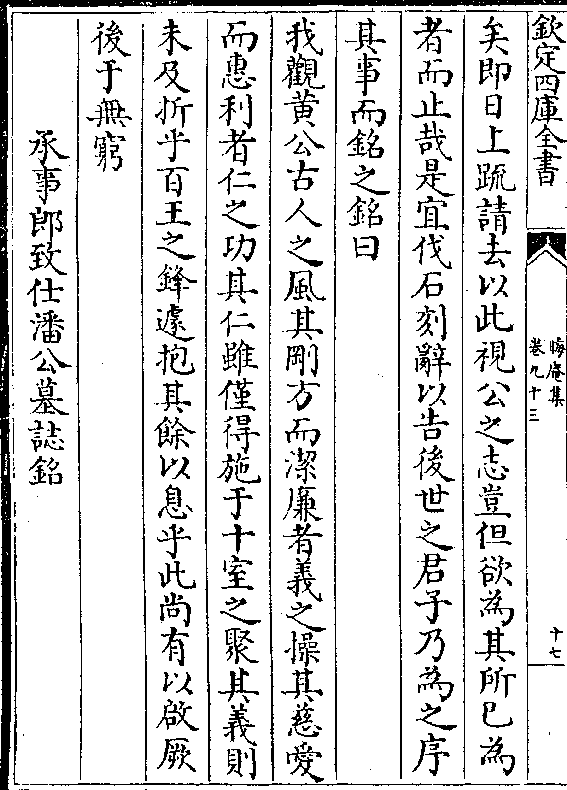 欽定四庫全書
晦庵集
卷九十三
十七
矣即日上疏請去以此視公之志豈但欲為其所已為
者而止哉是宜伐石刻辭以告後世之君子乃為之序
其事而銘之銘曰
我觀黃公古人之風其剛方而潔廉者義之操其慈愛
而惠利者仁之功其仁雖僅得施于十室之聚其義則
未及折乎百王之鋒遽抱其餘以息乎此尚有以啟厥
後于無窮
承事郎致仕潘公墓誌銘